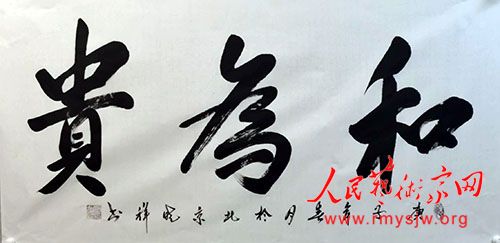 和為貴
庚子年春月於北京晓祥书
人民艺术家网
www.rmysjw.org